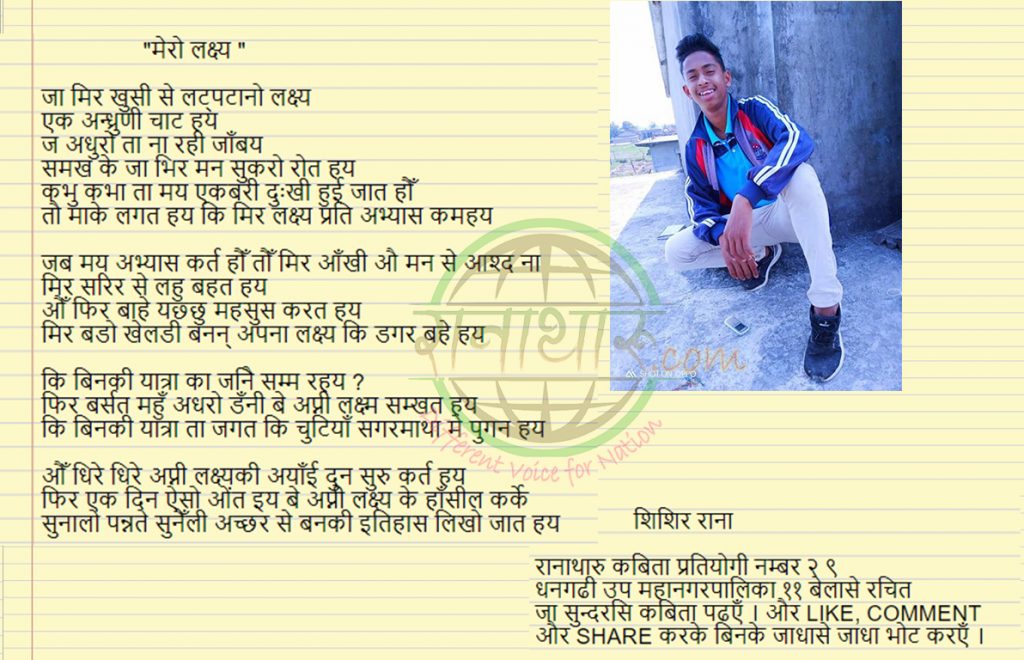 "मेरो लक्ष्य "
जा मिर खुसी से लटपटानो लक्ष्य
एक अन्धुणी चाट हय
ज अधुरो ता ना रही जाँबय
समख के जा भिर मन सुकरो रोत हय
कभु कभा ता मय एकबरी दुःखी हुई जात हौँ
तो माके लगत हय कि मिर लक्ष्य प्रति अभ्यास कमहय
जब मय अभ्यास कर्त हौँ तौँ मिर आँखी औ मन से आश्द ना
मिर सरिर से लहु बहत हय
औँ फिर बाहे यछछु महसुस करत हय
मिर बडो खेलडी बनन् अपना लक्ष्य कि डगर बहे हय
कि बिनकी यात्रा का जनि सम्म रहय ?
फिर बर्सत महुँ अधरो डँनी बे अप्नी लक्ष्म सम्खत हय
कि बिनकी यात्रा ता जगत कि चुटियाँ सगरमाथा मे पुगन हय
औँ धिरे धिरे अप्नी लक्ष्यकी अयाँई दुन सुरु कर्त हय
फिर एक दिन ऐसो ओत इय बे अप्नी लक्ष्य के हाँसील कर्के
सुनालो पन्नते सुनेली अच्छर से बनकी इतिहास लिखो जात हय
शिशिर राना
रानाथारु कबिता प्रतियोगी नम्बर २ ९
धनगढी उप महानगरपालिका ११ बेलासे रचित
जा सुन्दरसि कबिता पढएँ । और LIKE, COMMENT
और SHARE करके बिनके जाधासे जाधा भोट करएँ ।
रानाथारु.com
Different Voice for Nation
SHOT ON OPPO